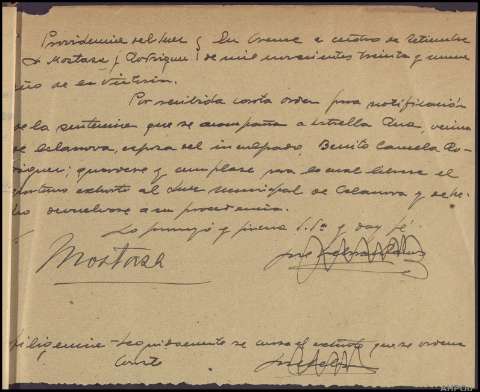 Providencia del Juez } En Orense a cuatro de Setiembre
Sr Mostaza y Rodriguez } de mil novecientos treinta y nueve
Año de la Victoria.
Por recibida carta orden para notificación
de la sentencia que se acompaña a Estrella Rua, vecina
de Celanova, esposa del inculpado, Benito Canuela Ro-
driguez; guardese y cumplase para lo cual librese el
oportuno exhorto al Juez municipal de Celanova y
devuelvase a su procedencia.
Lo proveyó y firma S.Sª y doy fé.
Mostaza
Diligencia - Seguidamente se cursa el exhorto que se ordena
AHPOU